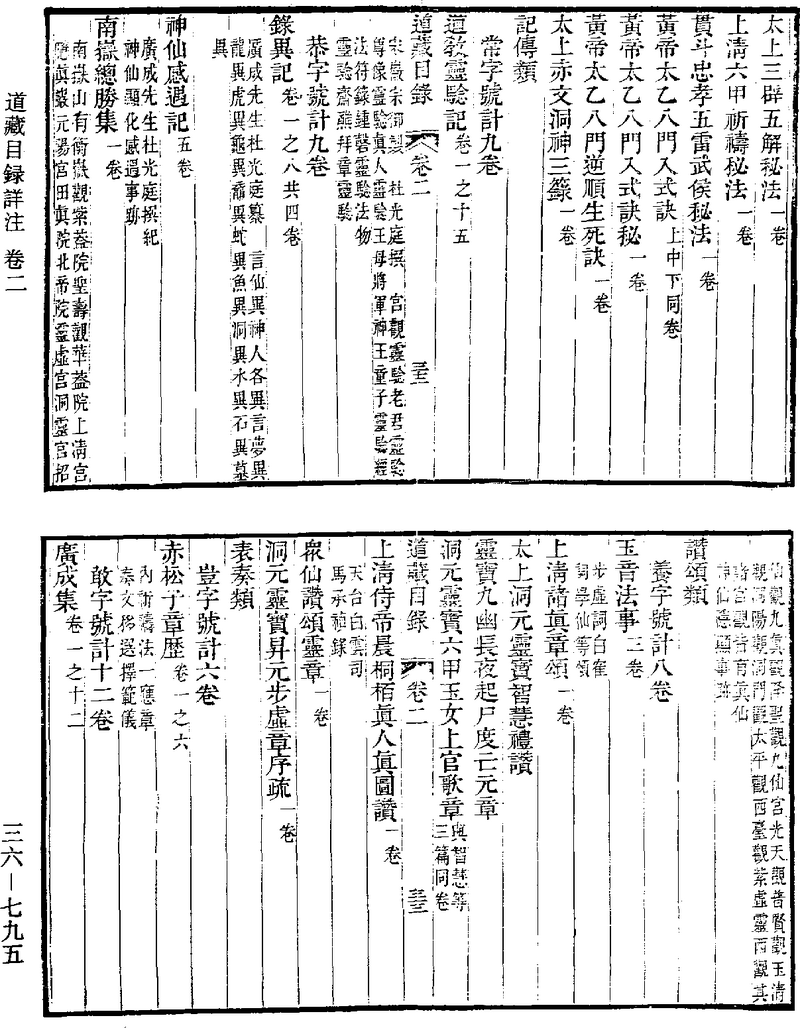 太上三辟五解秘法一卷
上清六甲祈禱秘法一卷
貫斗忠孝五雷武侯秘法一卷
黃帝太乙八門入式訣上中下同卷
黃帝太乙八門入式訣秘一卷
黃帝太乙八門逆順生死訣一卷
太上赤文洞神三籙一卷
記傳類
常字號計九卷
道教靈驗記卷一之十五
宋徽宗御製 杜光庭撰 宮觀靈驗老君靈驗
尊像靈驗真人靈驗王母將軍神王童子靈驗經
法符籙連磬靈驗法物
靈驗齋醮拜章靈驗
道藏目錄 卷二
恭字號計九卷
錄異記卷一之八共四卷
廣成先生杜光庭纂 言仙異神人各異言夢異
龍異虎異龜異黿異蛇異魚異洞異水異石異墓
異
神仙感遇記五卷
廣成先生杜光庭撰紀
神仙顯化感遇事跡
南嶽總勝集一卷
南嶽山有衡嶽觀紫蓋院聖壽觀華蓋院上清宮
真巖元陽宮田真院北帝院靈虛宮洞靈宮招
仙觀九真觀 聖觀九仙宮光天觀普賢觀玉清
觀洞陽觀洞門觀太平觀西臺觀紫虛靈西觀其
諸宮觀昔有真仙
神仙隱顯事跡
讚頌類
養字號計八卷
玉音法事三卷
步虛詞白雀
詞學仙等頌
上清諸真章頌一卷
太上洞元靈寶智慧禮讚
靈寶九幽長夜起尸度亡元章
洞元靈寶六甲玉女上宮歌章與智慧等三篇同卷
道藏目錄 卷二
上清侍帝晨桐栢真人真圖讚一卷
天台白雲司
馬承禎錄
眾仙讚頌靈章一卷
洞元靈寶昇元步虛章序疏一卷
表奏類
豈字號計六卷
赤松子章歷卷一之六
內祈禱法一應章
奏文移選擇範儀
敢字號計十二卷
廣成集卷一之十二
道藏目録詳注 卷二
三六—七九五